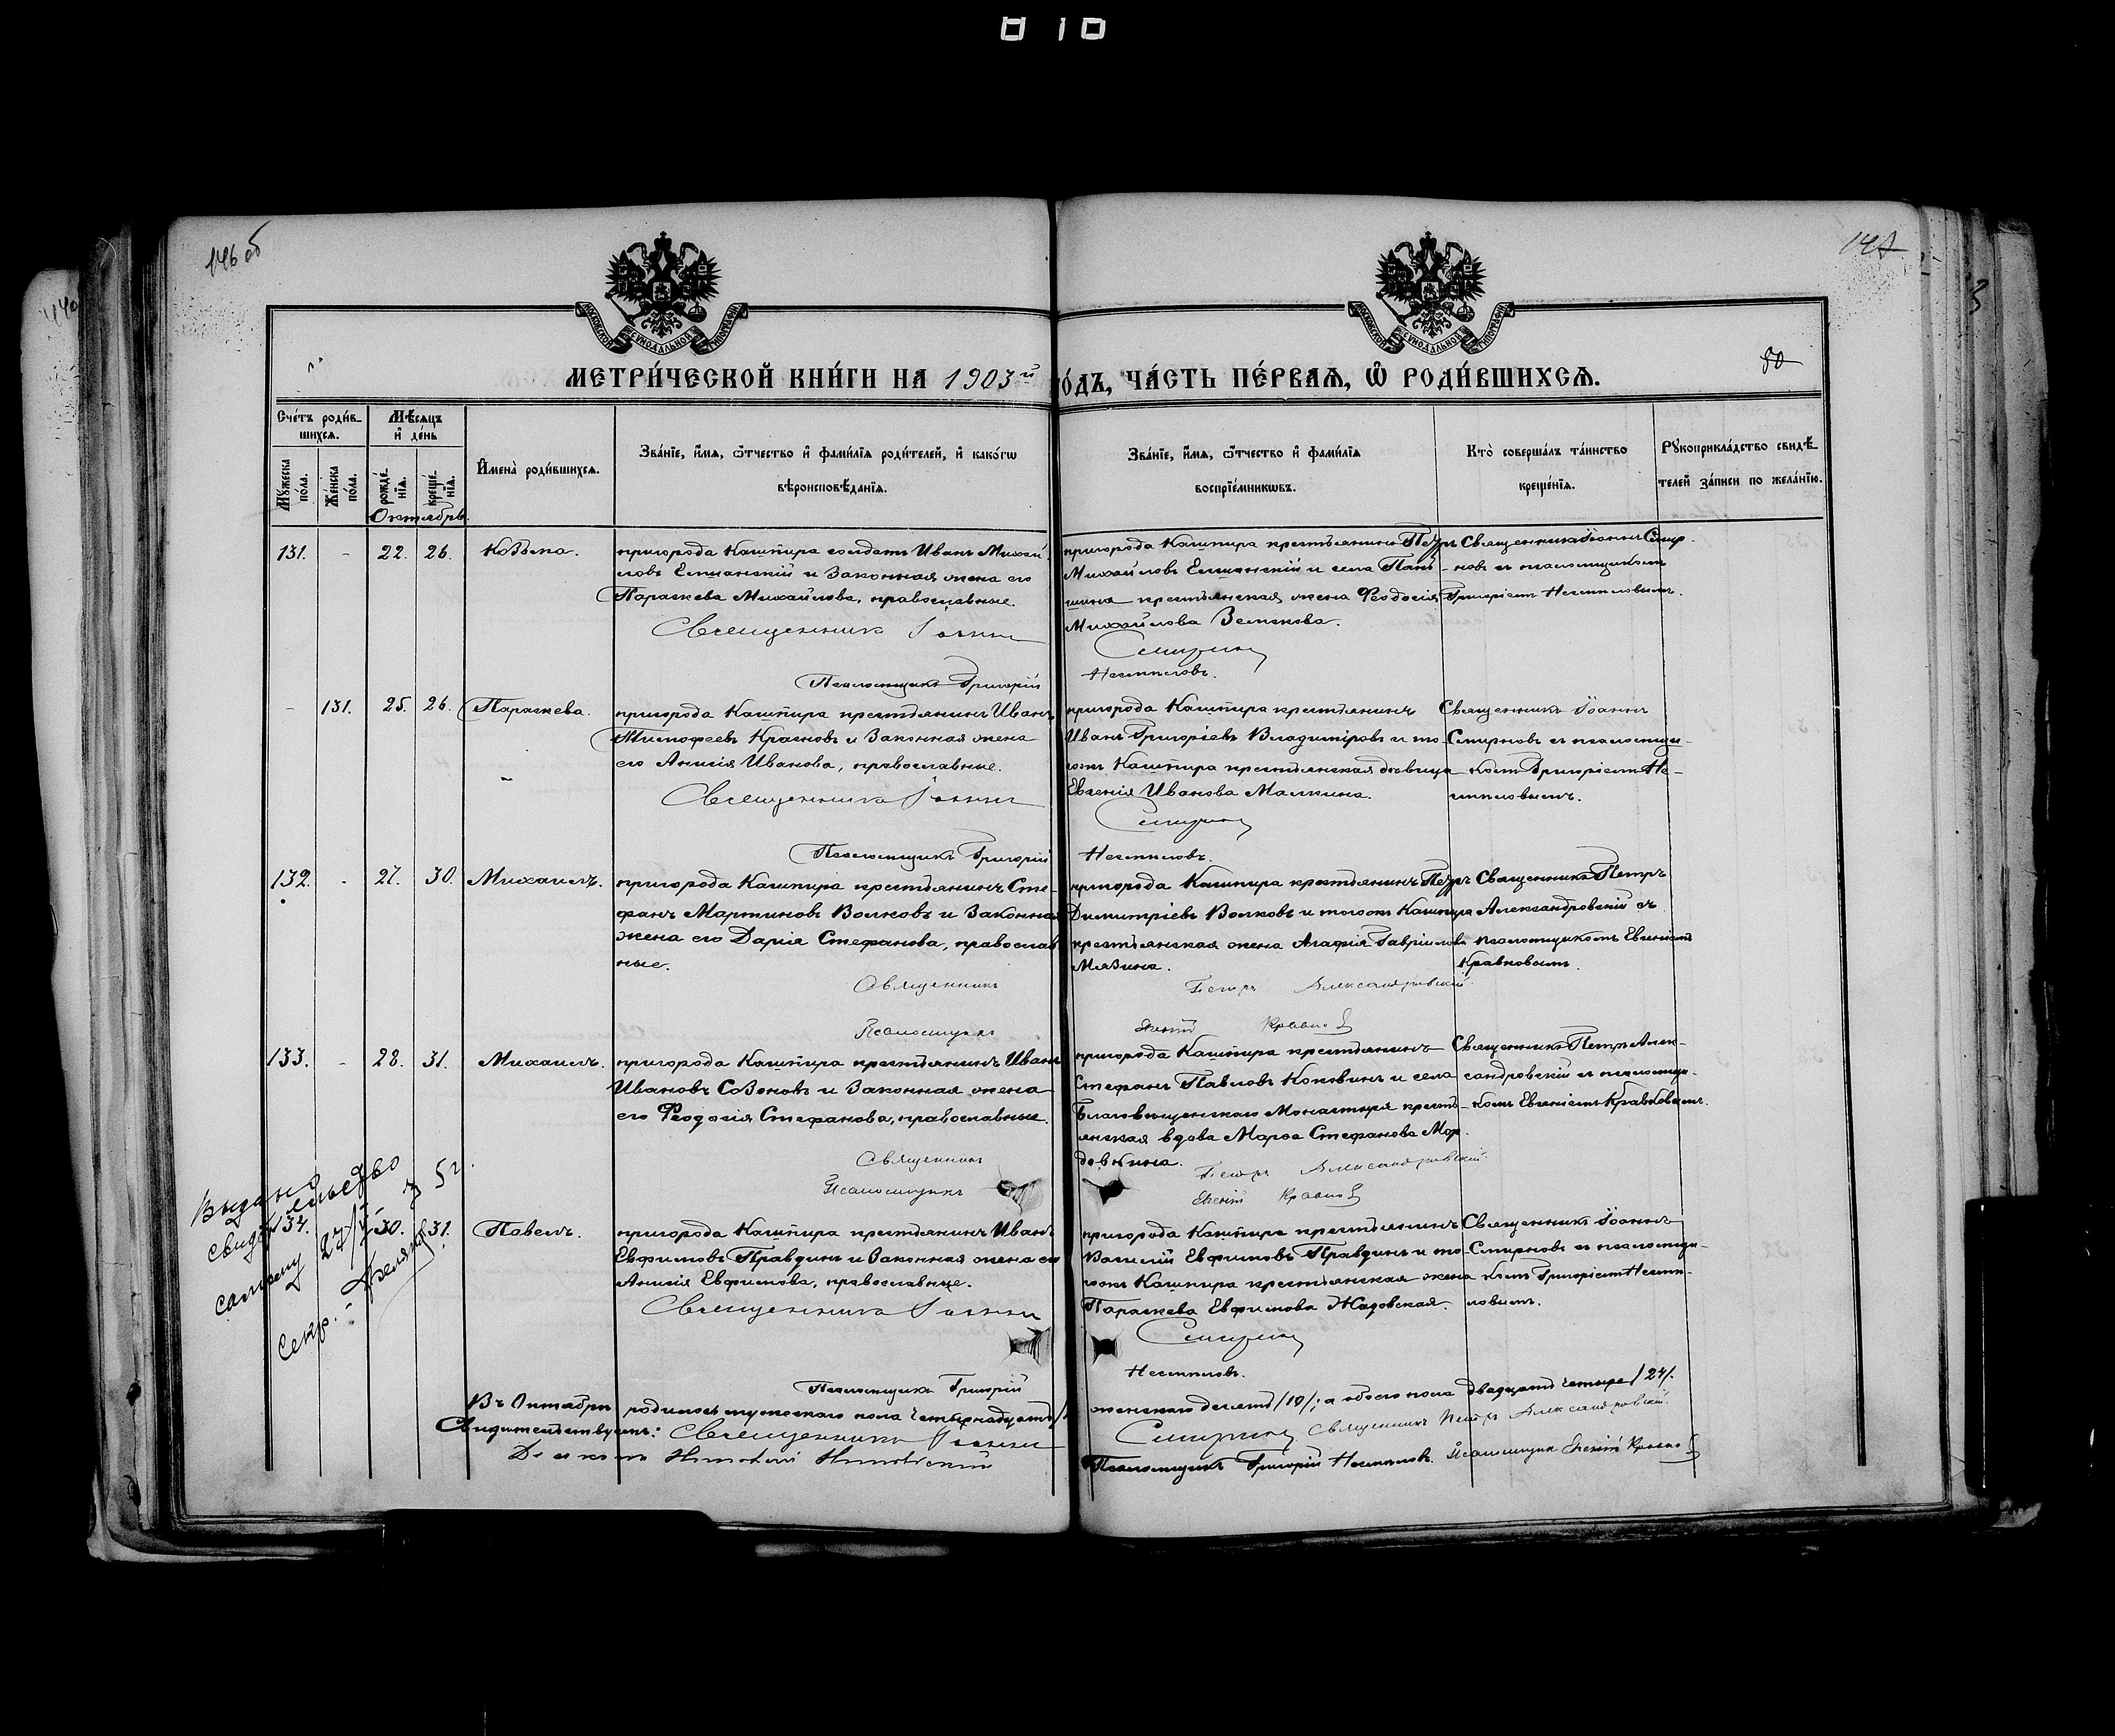 146 об
147
80
МОСКОВСКОЙ СУНОДАЛЬНОЙ ТИПОГРАФІИ
МОСКОВСКОЙ СУНОДАЛЬНОЙ ТИПОГРАФІИ
МЕТРИ́ЧЕСКОЙ КНИ́ГИ НА 1903й го́дъ, ЧА́СТЬ ПЕ́РВАЯ, Ѡ҆ РОДИ́ВШИХСЯ.
Сче́тъ роди́в-
шихся.
Мѣ́сяцъ
и҆ де́нь
Мꙋ́жеска по́ла.
Же́нска по́ла.
рожде́-
нїя.
креще́-
нїя.
И҆мена̀ роди́вшихся.
Зва́нїе, и҆́мя, ѻ҆́тчество и҆ фами́лїя роди́телей, и҆ како́гѡ
вѣроисповѣ́данїя.
Зва́нїе, и҆́мя, ѻ҆́тчество и҆ фами́лїя
воспрїе́мникѡвъ.
Кто̀ соверша́лъ та́инство
креще́нїя.
Рꙋкоприкла́дство свидѣ́-
телей за́писи по жела́нїю.
Октябрь.
131. - 22. 26. Козьма.
пригорода Кашпира солдатъ Иванъ Михай-
ловъ Елшанскій и законная жена его
Параскева Михайлова, православные.
Священникъ Іоаннъ
Псаломщикъ Григорій
пригорода Кашпира крестьянинъ Петръ
Михайловъ Елшанскій и села Пань-
шина крестьянская жена Феодосія
Михайлова Земскова.
Смирнов
Несмѣловъ.
Священникъ Іоаннъ Смир-
новъ съ псаломщикомъ
Григоріемъ Несмѣловымъ.
- 131. 25. 26. Параскева.
пригорода Кашпира крестьянинъ Иванъ
Тимофеевъ Красновъ и законная жена
его Анисія Иванова, православные.
Священникъ Іоаннъ
Псаломщикъ Григорій
пригорода Кашпира крестьянинъ
Иванъ Григоріевъ Владиміровъ и то-
гожъ Кашпира крестьянская дѣвица
Евгенія Иванова Малкина.
Смирнов
Несмѣловъ.
Священникъ Іоаннъ
Смирновъ съ псаломщи-
комъ Григоріемъ Не-
смѣловымъ.
132. - 27. 30. Михаилъ.
пригорода Кашпира крестьянинъ Сте-
фанъ Мартиновъ Волковъ и законная
жена его Дарія Стефанова, православ-
ные.
Священникъ
Псаломщикъ
пригорода Кашпира крестьянинъ Петръ
Димитріевъ Волковъ и тогожъ Кашпира
крестьянская жена Агафія Гавріилова
Мязина.
Петръ Александровскій
Евгеній Кравков
Священникъ Петръ
Александровскій съ
псаломщикомъ Евгеніемъ
Кравковымъ.
133. - 28. 31. Михаилъ.
пригорода Кашпира крестьянинъ Иванъ
Ивановъ Созоновъ и законная жена
его Феодосія Стефанова, православные.
Священникъ
Псаломщикъ
пригорода Кашпира крестьянинъ
Стефанъ Павловъ Коковинъ и села
Благовѣщенскаго Монастыря кресть-
янская вдова Марѳа Стефанова Мор-
довкина.
Петръ Александровскій.
Евгеній Кравков
Священникъ Петръ Алек-
сандровскій съ псаломщи-
комъ Евгеніемъ Кравковымъ.
134. 30. 31. Павелъ.
пригорода Кашпира крестьянинъ Иванъ
Евфимовъ Правдинъ и законная жена его
Анисія Евфимова, православные.
Священникъ Іоаннъ
Псаломщикъ Григорій
пригорода Кашпира крестьянинъ
Василій Евфимовъ Правдинъ и то-
гожъ Кашпира крестьянская жена
Параскева Евфимова Жадовская.
Смирнов
Несмѣловъ.
Священникъ Іоаннъ
Смирновъ съ псаломщи-
комъ Григоріемъ Несмѣ-
ловымъ.
Выдано
свидѣтельство
самому 27/V
Секр.:
Въ Октябрѣ родилось мужескаго пола четырнадцать
женскаго десять /10/; а обоего пола двадцать четыре /24/.
Свидѣтельствуютъ: Священникъ Іоаннъ
Смирнов Священникъ Петръ Александровскій.
Діаконъ
Псаломщикъ Григорій Несмѣловъ. Псаломщикъ Евгеній Кравков